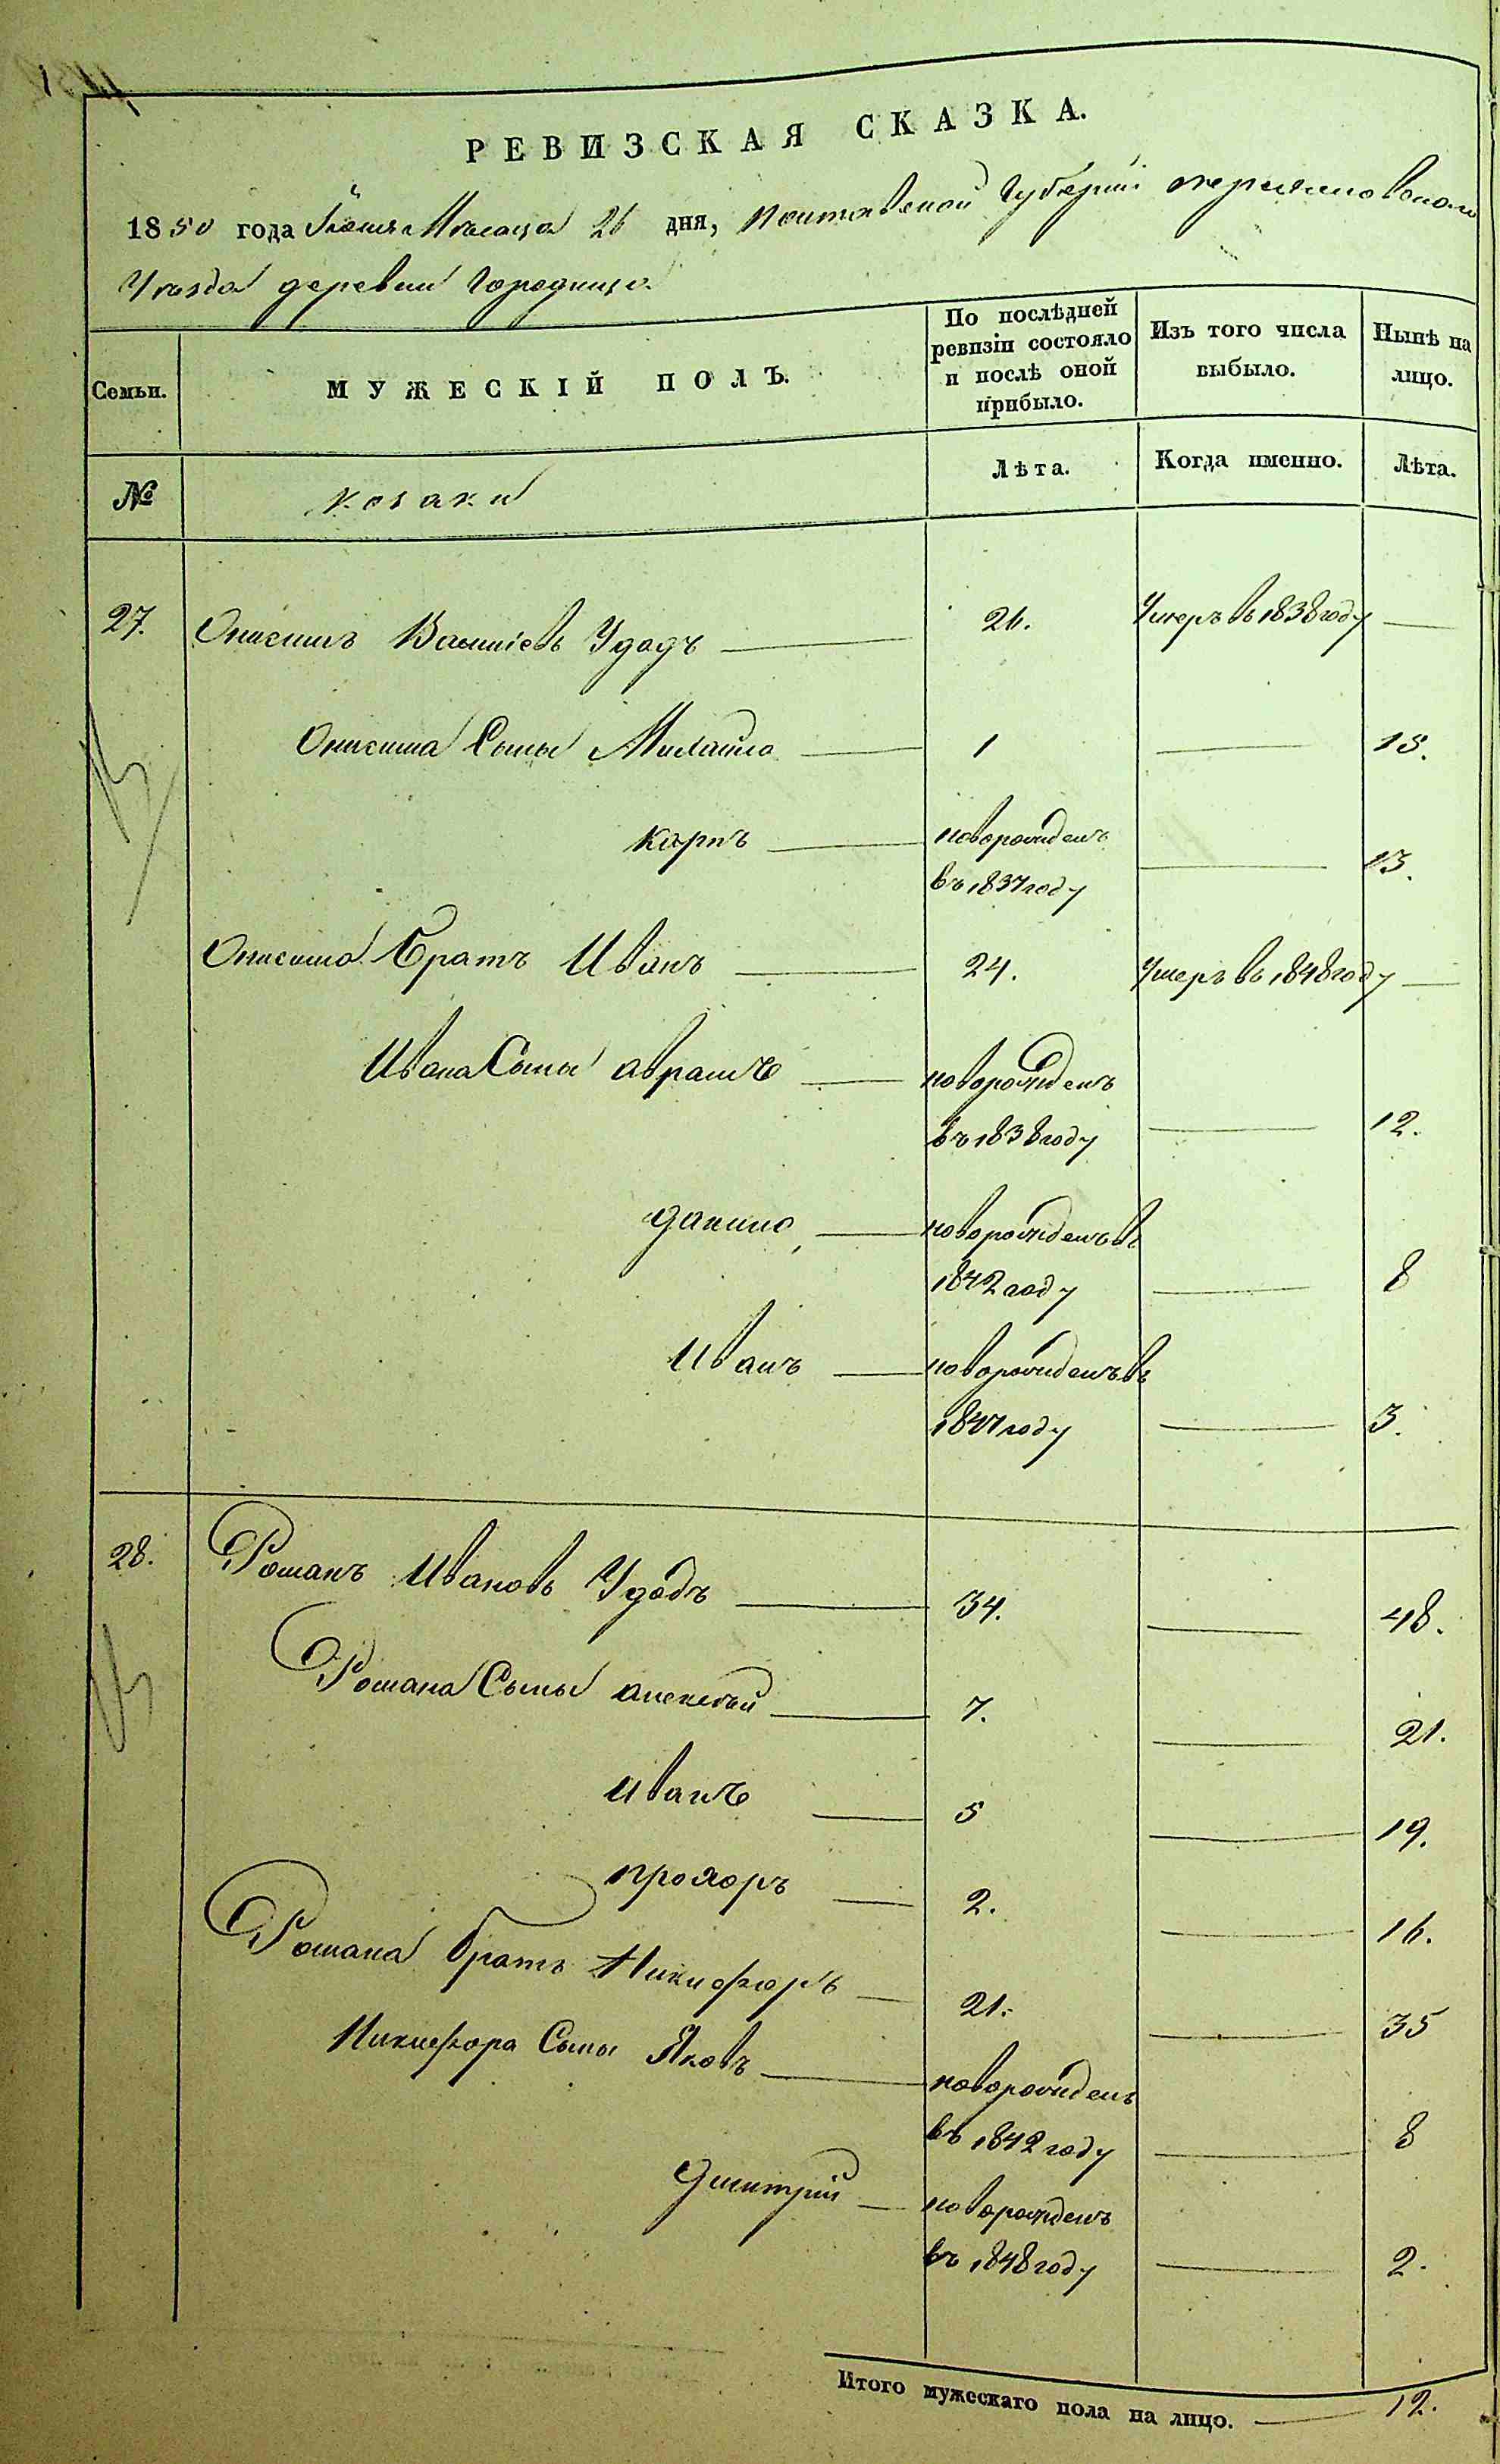 РЕВИЗСКАЯ СКАЗКА.
1850 года Июня Месяца 26 дня, Полтавской Губерніи
Уезда деревни Городища
Семьи. МУЖЕСКІЙ ПОЛЪ. По послѣдней ревизіи состояло и послѣ оной прибыло. Изъ того числа выбыло. Нынѣ на лицо.
№ козаки Лѣта. Когда именно. Лѣта.
27. Онисимъ Удодъ 26. Умеръ въ 1838 году
Онисима Сыны Михайло 1 15.
Карпъ новорожденъ въ 1837 году 13.
Онисима Братъ Иванъ 24. Умеръ въ 1848 году
Ивана Сыны Аврамъ новорожденъ въ 1838 году 12.
Данило новорожденъ въ 1842 году 8
Иванъ новорожденъ въ 1847 году 3.
28. Романъ Ивановъ Удодъ 34. 48.
Романа Сыны Алексѣй 7. 21.
Иванъ 5 19.
Прохоръ 2. 16.
Романа братъ Никифоръ 21. 35
Никифора Сыны Яковъ новорожденъ въ 1842 году 8
Дмитрій новорожденъ въ 1848 году 2.
Итого мужескаго пола на лицо. 12.